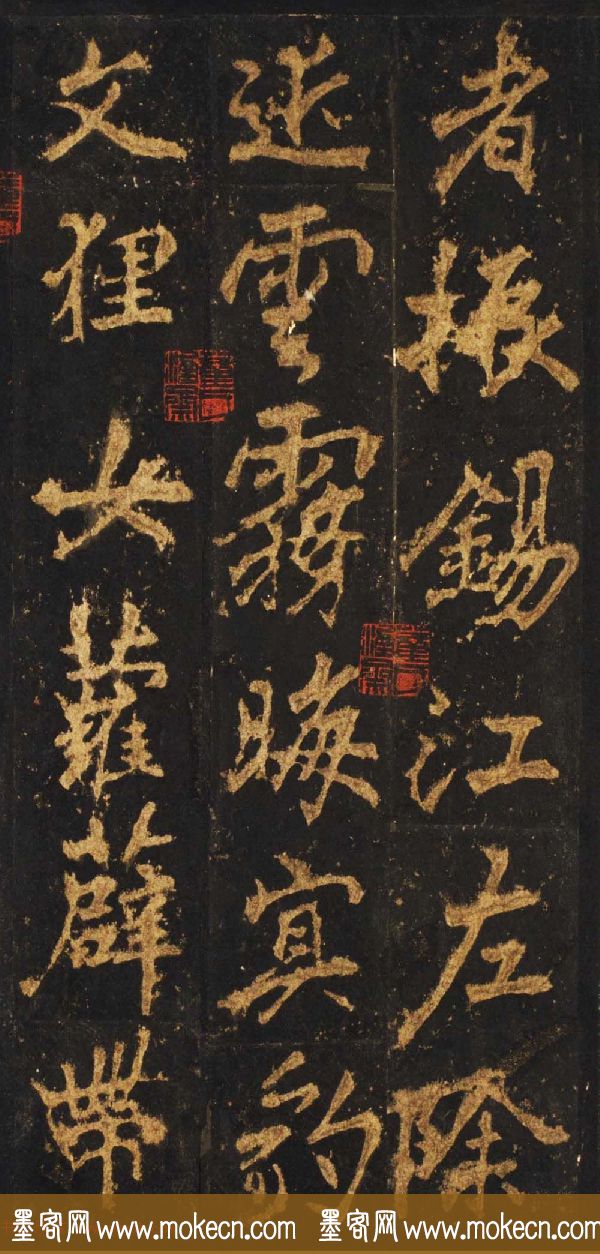 者振錫江左除
雲霧晦冥豹
文狸女蘿薜帶
墨客网 www.mokecn.com 墨客网 www.mokecn.com